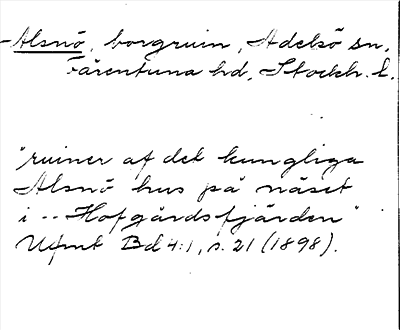 -Alsnö, borgruin, Adelsö sn,
Färentuna hd, Stockh. l.
"ruiner af det kungliga
Alsnö hus på näset
i -- Hofgårdsfjärden"
Upmt Bd 4:1, s. 21 (1898).